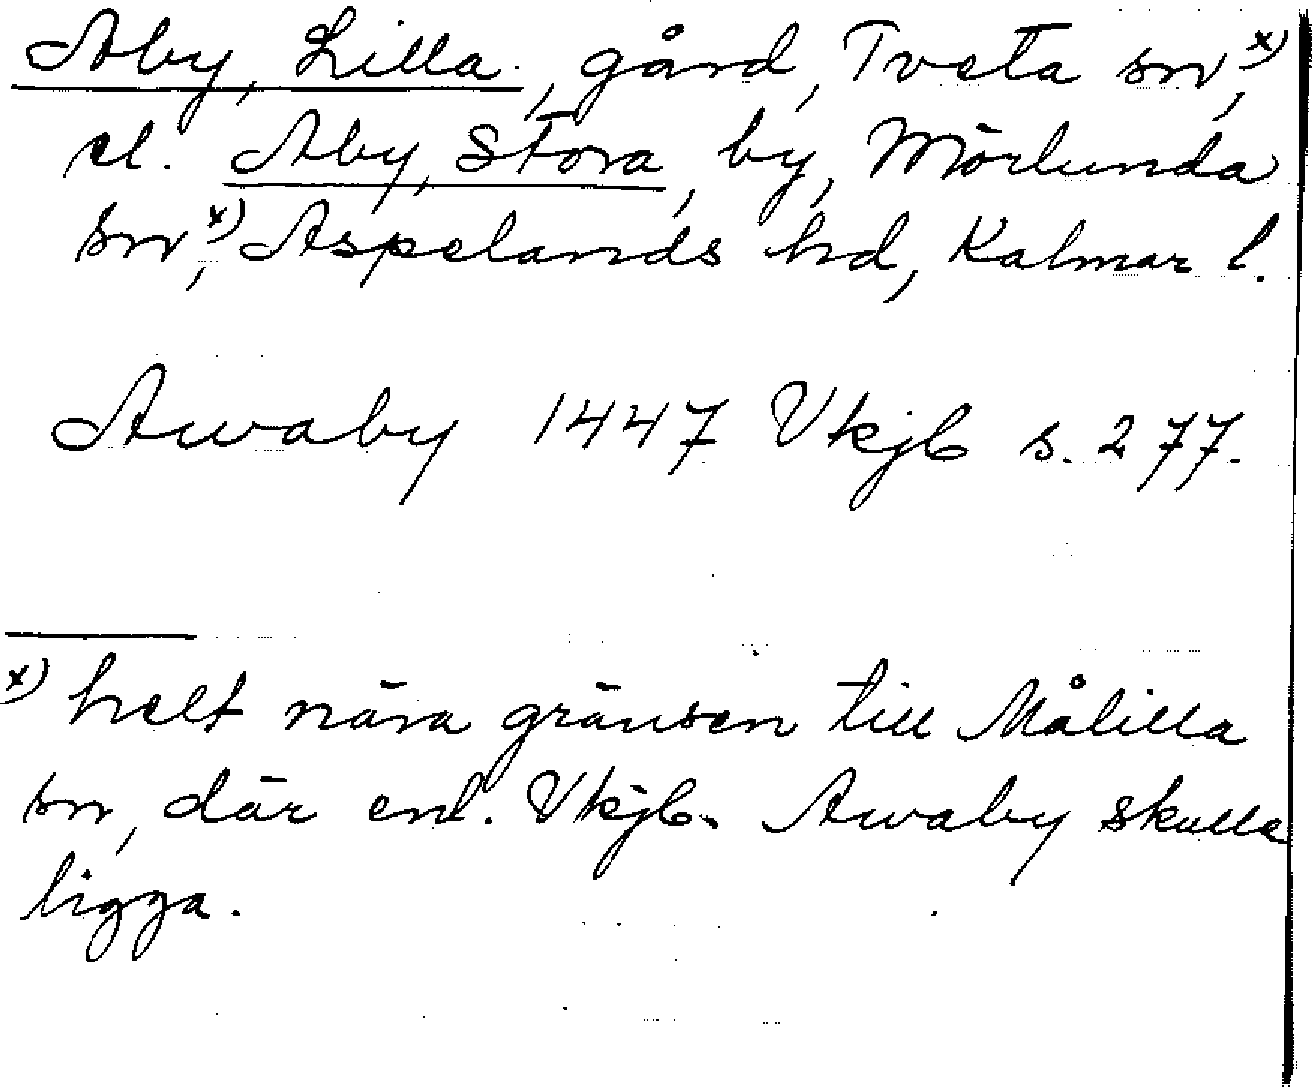 Åby, Lilla, gård, Tveta sn,x)
el. Åby, Stora, by, Mörlunda
sn,x) Aspelands hd, Kalmar l.
Awaby 1447 Vkjb s. 277.
x) helt nära gränsen till Målilla
sn, där enl. Vkjb. Awaby skulle
ligga.